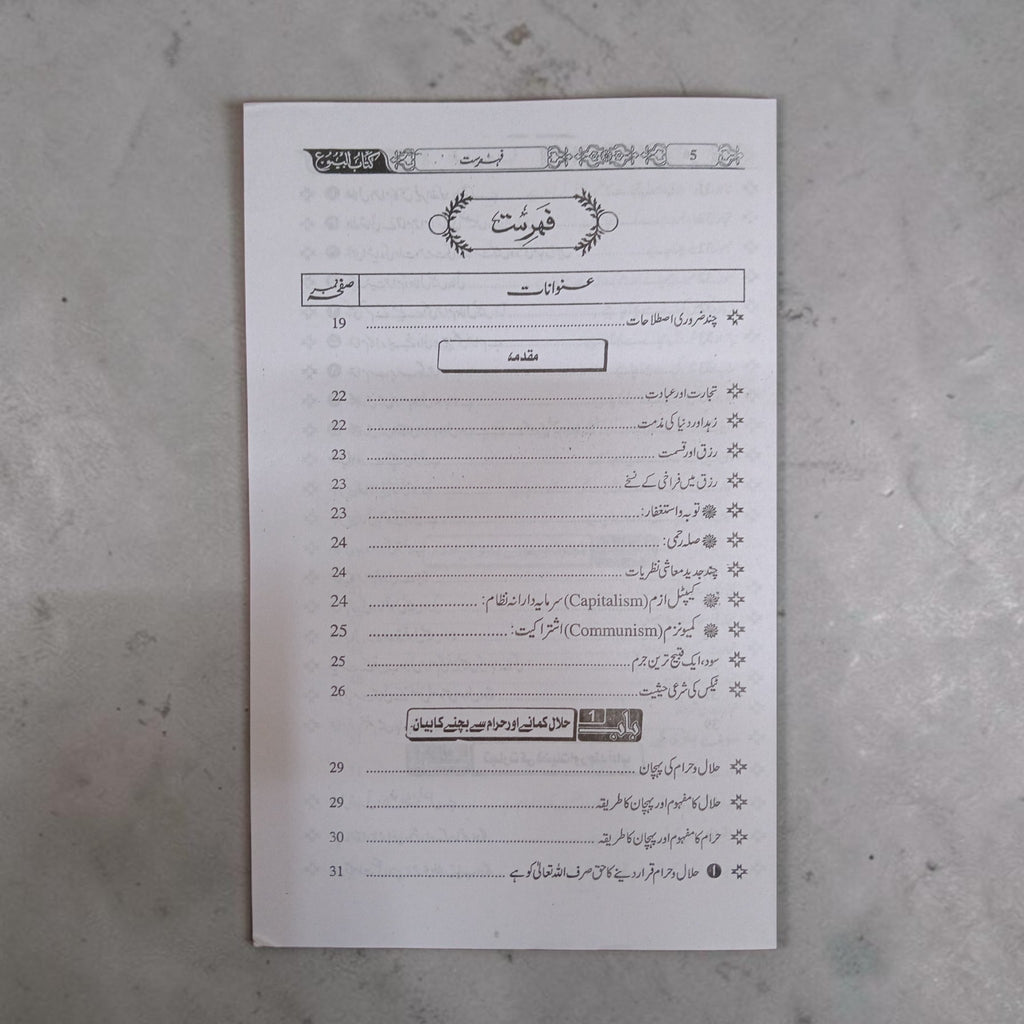 کتاب البیوع فہرست 5
فہرست
عنوانات صفحہ نمبر
چند ضروری اصطلاحات 19
مقدمہ
تجارت اور عبادت 22
زہد اور دنیا کی مذمت 22
رزق اور قسمت 23
رزق میں فراخی کے نسخے 23
توبہ واستغفار: 23
صلہ رحمی: 24
چند جدید معاشی نظریات 24
کیپٹل ازم (Capitalism) سرمایہ دارانہ نظام: 24
کمیونزم (Communism) اشتراکیت: 25
سود، ایک قبیح ترین جرم 25
ٹیکس کی شرعی حیثیت 26
باب 1 حلال کمانے اور حرام سے بچنے کا بیان
حلال وحرام کی پہچان 29
حلال کا مفہوم اور پہچان کا طریقہ 29
حرام کا مفہوم اور پہچان کا طریقہ 30
1 حلال وحرام قرار دینے کا حق صرف اللہ تعالیٰ کو ہے 31